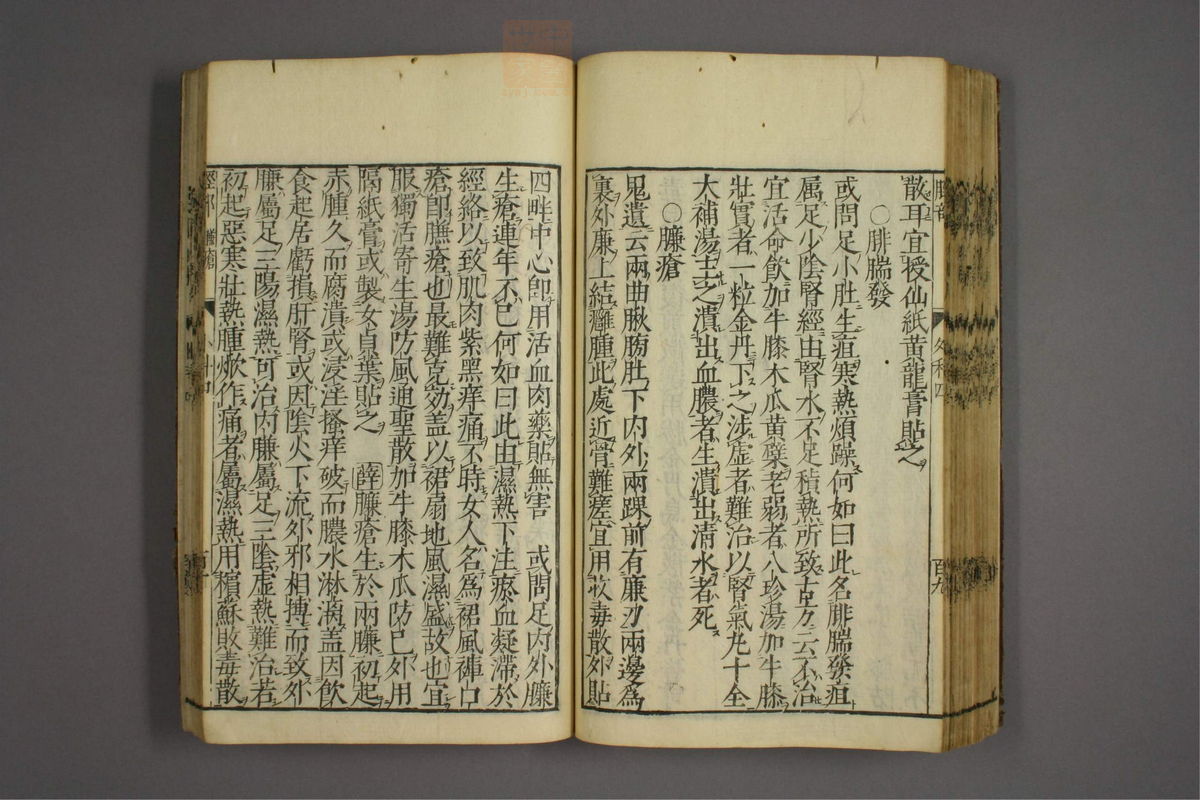 散耳宜授仙紙黄龍膏貼之
〇腓腨發
或問足小肚生疽寒熱煩躁何如曰此名腓腨發疽
属足少陰腎經由腎水不足積熱所致古方云不治
宜活命飲加牛膝木瓜黄蘗老弱者八珍湯加牛膝
壯實者一粒金丹下之渉虚者難治以腎氣丸十全
大補湯主之潰出血膿者生潰出清水者死
〇臁瘡
鬼遺云兩曲䐐肭肚下内外兩踝前有廉刃兩邊為
裏外廉上結癰腫此處近骨難瘥宜用敗毒散外貼
四畔中心卽用活血肉藥貼無害　或問足内外臁
生瘡連年不已何如曰此由濕熱下注瘀血凝滯於
經絡以致肌肉紫黑痒痛不時女人名為裙風褲口
瘡卽臁瘡也最難克効盖以裙扇地風濕盛故也宜
服獨活寄生湯防風通聖散加牛膝木瓜防已外用
隔紙膏或製女貞葉貼之　薛臁瘡生於兩臁初起
赤腫久而腐潰或浸淫搔痒破而膿水淋漓盖因飲
食起居虧損肝腎或因陰火下流外邪相搏而致外
臁屬足三陽濕熱可治内臁屬足三陰虚熱難治若
初起惡寒壯熱腫焮作痛者屬濕熱用檳蘇敗毒散